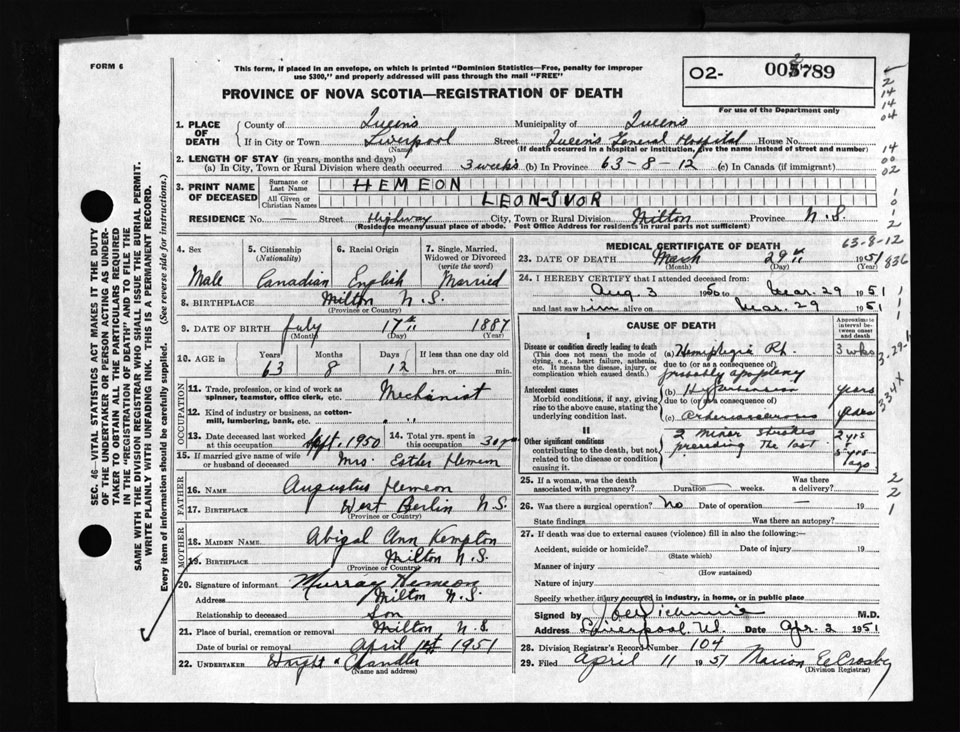 FORM 6
This form, if placed in an envelope, on which is printed "Dominion Statistics—Free, penalty for improper
use $300," and properly addressed will pass through the mail "FREE"
PROVINCE OF NOVA SCOTIA—REGISTRATION OF DEATH
02- 005789
8
For use of the Department only
1. PLACE OF DEATH
County of Queens Municipality of Queens
If in City or Town Liverpool Street Queens General Hospital House No.
(Name) (If death occurred in a hospital or institution, give the name instead of street and number)
2. LENGTH OF STAY (in years, months and days)
(a) In City, Town or Rural Division where death occurred 3 weeks (b) In Province 63-8-12 (c) In Canada (if immigrant)
3. PRINT NAME OF DECEASED
Surname or Last Name HEMEON
All Given or Christian Names LEON-IVOR
RESIDENCE No. — Street Highway City, Town or Rural Division Milton Province N.S.
(Residence means usual place of abode. Post Office Address for residents in rural parts not sufficient)
4. Sex Male
5. Citizenship (Nationality) Canadian
6. Racial Origin English
7. Single, Married, Widowed or Divorced (write the word) Married
8. BIRTHPLACE Milton N.S.
(Province or Country)
9. DATE OF BIRTH July 17th 1887
(Month) (Day) (Year)
10. AGE in Years 63 Months 8 Days 12 If less than one day old hrs. or min.
OCCUPATION
11. Trade, profession, or kind of work as spinner, teamster, office clerk, etc. Mechanist
12. Kind of industry or business, as cotton-mill, lumbering, bank, etc. " "
13. Date deceased last worked at this occupation Sept. 1950
14. Total yrs. spent in this occupation 30 yrs
15. If married give name of wife or husband of deceased Mrs. Esther Hemeon
FATHER
16. NAME Augustus Hemeon
17. BIRTHPLACE West Berlin N.S.
(Province or Country)
MOTHER
18. MAIDEN NAME Abigal Ann Kempton
19. BIRTHPLACE Milton N.S.
(Province or Country)
20. Signature of informant Murray Hemeon
Address Milton N.S.
Relationship to deceased Son
21. Place of burial, cremation or removal Milton N.S.
Date of burial or removal April 1st 1951
22. UNDERTAKER Wright & Chandler
(Name and address)
MEDICAL CERTIFICATE OF DEATH
63-8-12
23. DATE OF DEATH March 29th 1951
(Month) (Day) (Year)
836
24. I HEREBY CERTIFY that I attended deceased from:
Aug 3 1950 to Mar. 29 1951
and last saw him alive on Mar. 29 1951
CAUSE OF DEATH
Approximate interval between onset and death
Disease or condition directly leading to death
(This does not mean the mode of dying, e.g., heart failure, asthenia, etc. It means the disease, injury, or complication which caused death.)
(a) Hemiplegia Rt. 3 wks
due to (or as a consequence of)
probably apoplexy
Antecedent causes
Morbid conditions, if any, giving rise to the above cause, stating the underlying condition last.
(b) years
due to (or as a consequence of)
(c) years
II
Other significant conditions contributing to the death, but not related to the disease or condition causing it.
2 minor strokes
preceding the last
2 yrs
ago
3-29-1
334X
25. If a woman, was the death associated with pregnancy? Duration weeks Was there a delivery?
26. Was there a surgical operation? No Date of operation — 19
State findings Was there an autopsy?
27. If death was due to external causes (violence) fill in also the following:—
Accident, suicide or homicide? Date of injury 19
(State which)
Manner of injury
(How sustained)
Nature of injury
Specify whether injury occurred in industry, in home, or in public place
Signed by M.D.
Address Liverpool, N.S. Date Apr. 2 1951
28. Division Registrar's Record Number 104
29. Filed April 11 1951 Marion E. Crosby
(Division Registrar)
SEC. 46—VITAL STATISTICS ACT MAKES IT THE DUTY
OF THE UNDERTAKER OR PERSON ACTING AS UNDER-
TAKER TO OBTAIN ALL THE PARTICULARS REQUIRED
IN THE "REGISTRATION OF DEATH" AND TO FILE THE
SAME WITH THE DIVISION REGISTRAR WHO SHALL ISSUE THE BURIAL PERMIT.
WRITE PLAINLY WITH UNFADING INK. THIS IS A PERMANENT RECORD.
Every item of information should be carefully supplied. (See reverse side for instructions.)